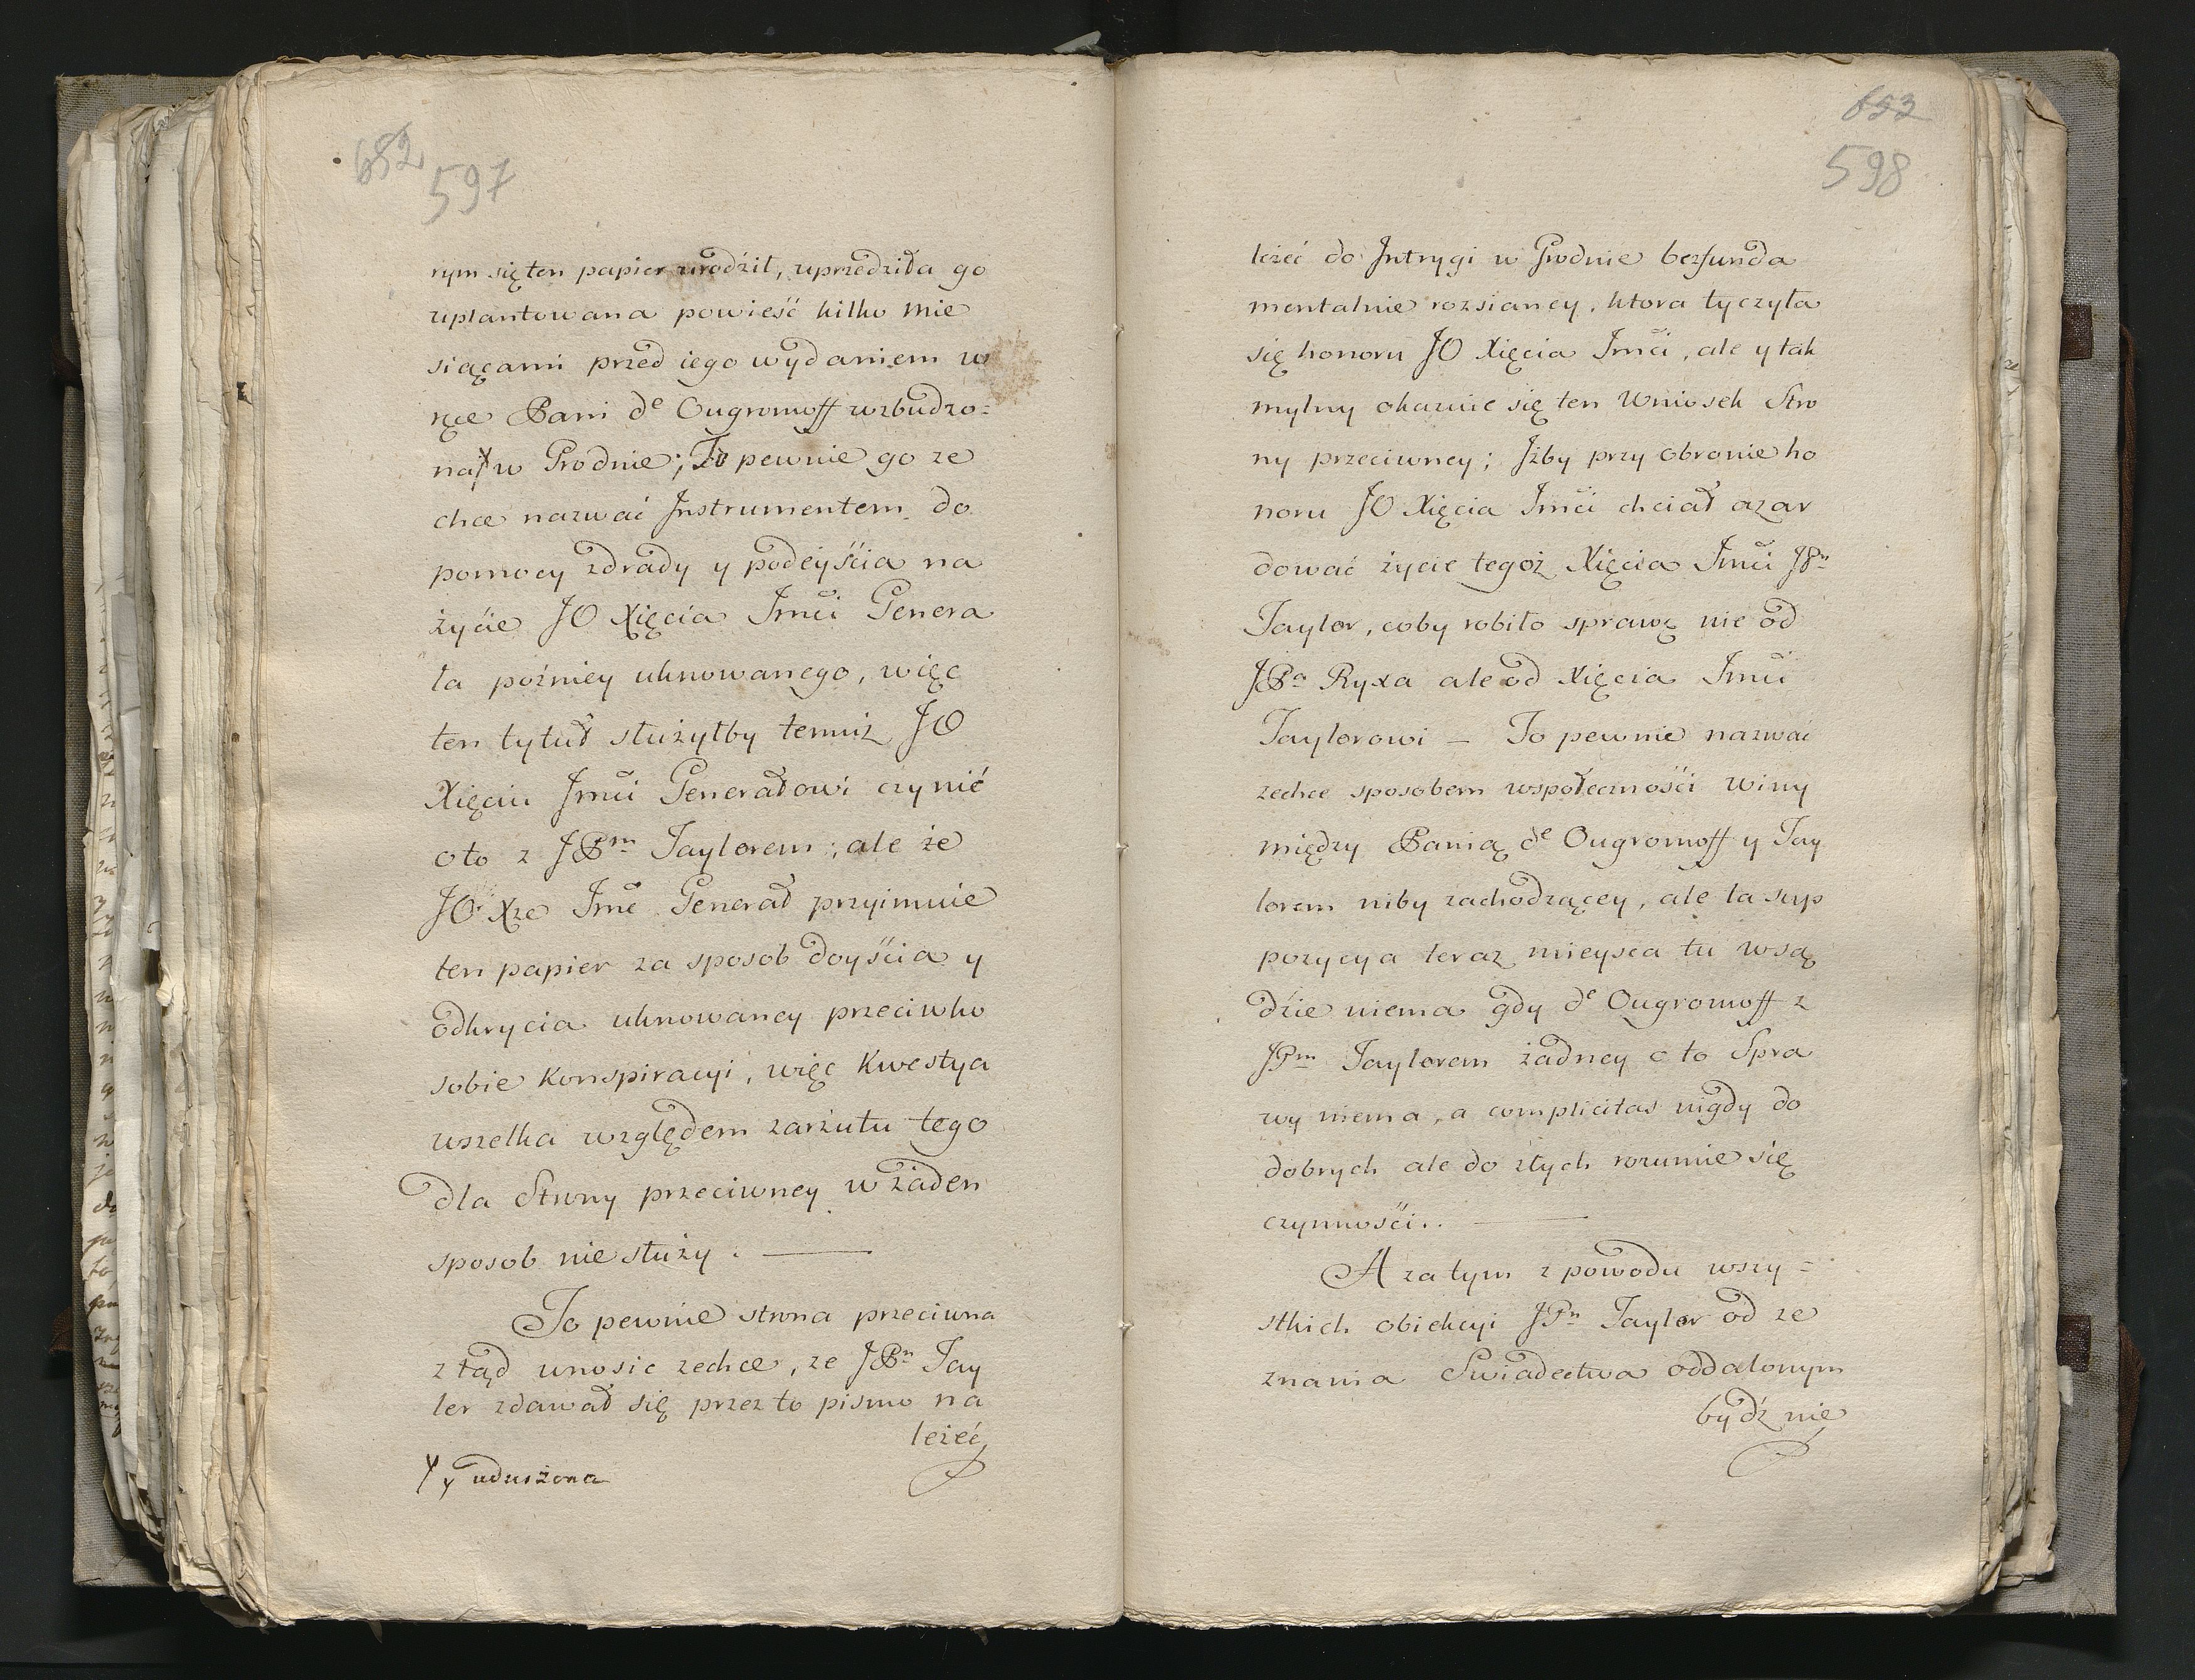 682
597
rym się ten papier urodził, uprzedziła go
uplantowana powieść kilko mie
siącami przed iego wydaniem w
ręce Pani de Ougromoff wzbudzo=
na w Grodnie; To pewnie go ze
chce nazwać Instrumentem do
pomocy zdrady y podeyścia na
życie JO Xięcia Jmći Genera
ła poźniey uknowanego, więc
ten tytuł służyłby temuż JO
Xięciu Jmći Generałowi czynić
o to z JPm Taylorem; ale że
JO Xże Jmć Generał przyimuie
ten papier za sposob doyścia y
odkrycia uknowaney przeciwko
sobie Konspiracyi, więc Kwestya
wszelka względem zarzutu tego
dla Strony przeciwney w żaden
sposob nie służy. —
To pewnie strona przeciwna
ztąd unosic zechce, ze JPn Tay
ler zdawał się przez to pismo na
leżeć
y uduszona
653
598
leżeć do Intrygi w Grodnie bezfunda
mentalnie rozsianey, ktora tyczyła
się honoru JO Xięcia Jmći, ale y tak
mylny okazuie się ten Wniosek Stro
ny przeciwney; Iżby przy obronie ho
noru JO Xięcia Jmći chciał azar
dować życie tegoż Xięcia Jmći JPn
Taylor, coby robiło sprawę nie od
JPa Ryxa ale od Xięcia Jmći
Taylorowi — To pewnie nazwać
zechce sposobem wspołeczności winy
między Panią de Ougromoff y Tay
lorem niby zachodzącey, ale ta sup
pozycya teraz mieysca tu wsą
dzie niema gdy de Ougromoff z
JPm Taylorem żadney o to Spra
wy niema, a complicitas nigdy do
dobrych ale do złych rozumie się
czynności.. —
A zatym z powodu wszy=
stkich obiekcyi JPn Taylor od ze
znania Swiadectwa oddalonym
bydź nie